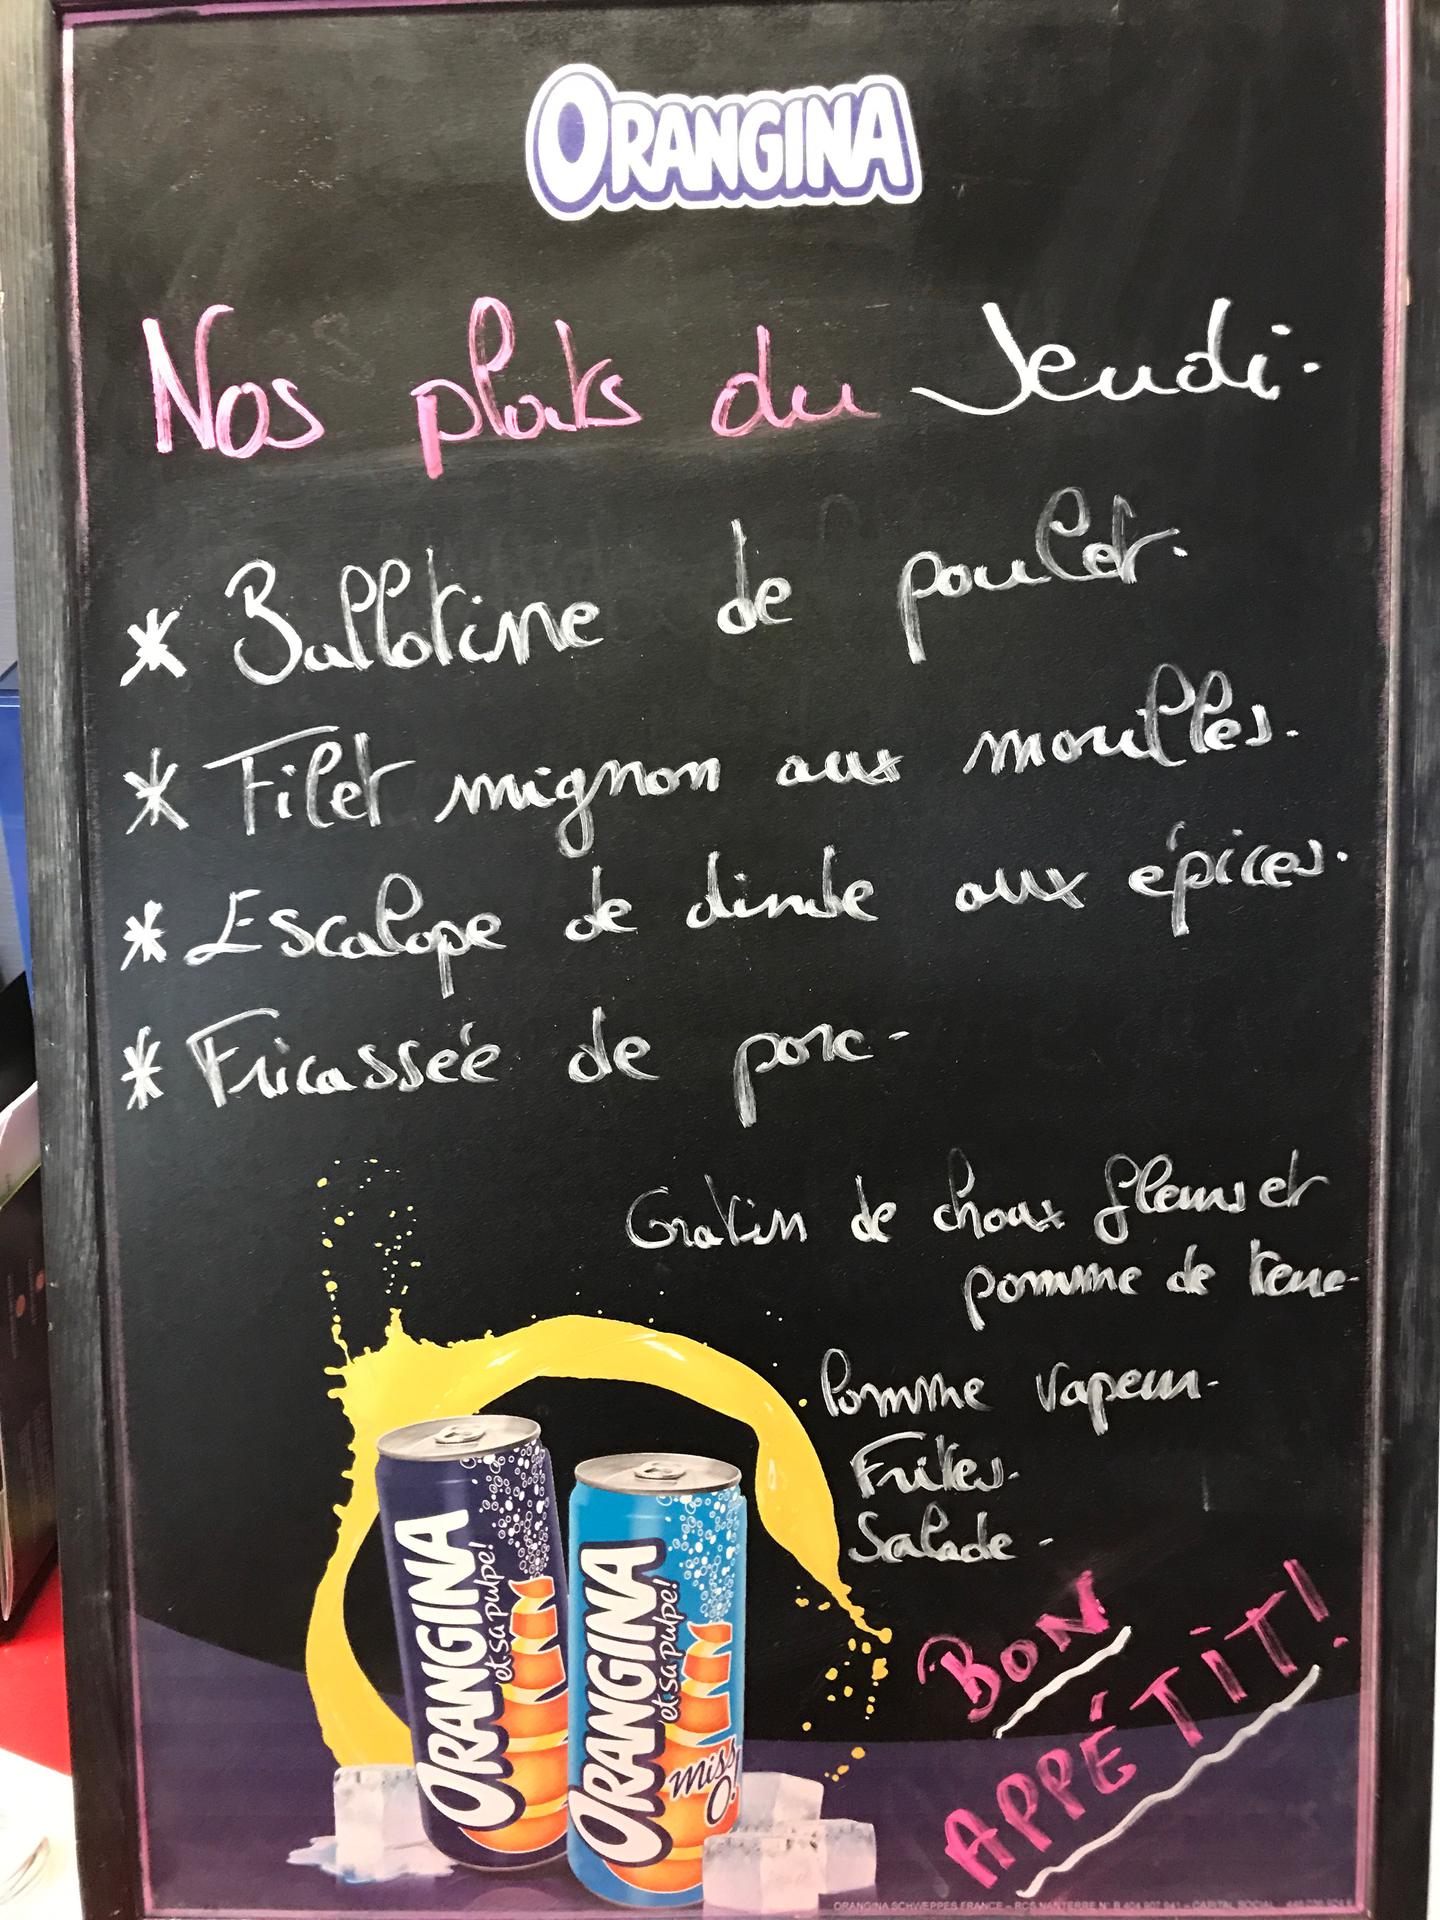 ORANGINA
Nos plats du Jeudi.
* Ballotine de poulet.
* Filet mignon aux morilles.
* Escalope de dinde aux épices.
* Fricassée de porc-
Gratin de choux fleurs et
pomme de terre-
Pomme vapeur-
Frites-
Salade-
BON
APPÉTIT!
ORANGINA
et sa pulpe!
ORANGINA
et sa pulpe!
miss O!
ORANGINA SCHWEPPES FRANCE – RCS NANTERRE N° B 404 907 941 – CAPITAL SOCIAL